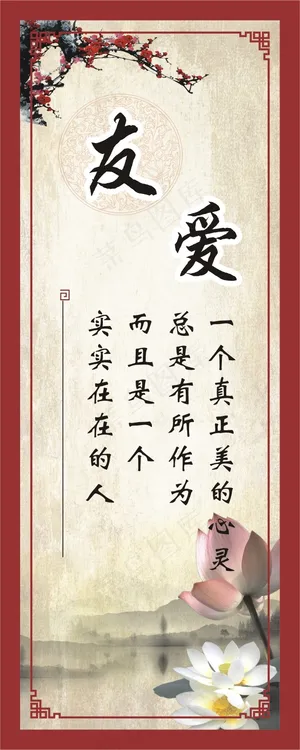 友爱
一个真正美的心灵
总是有所作为
而且是一个
实实在在的人